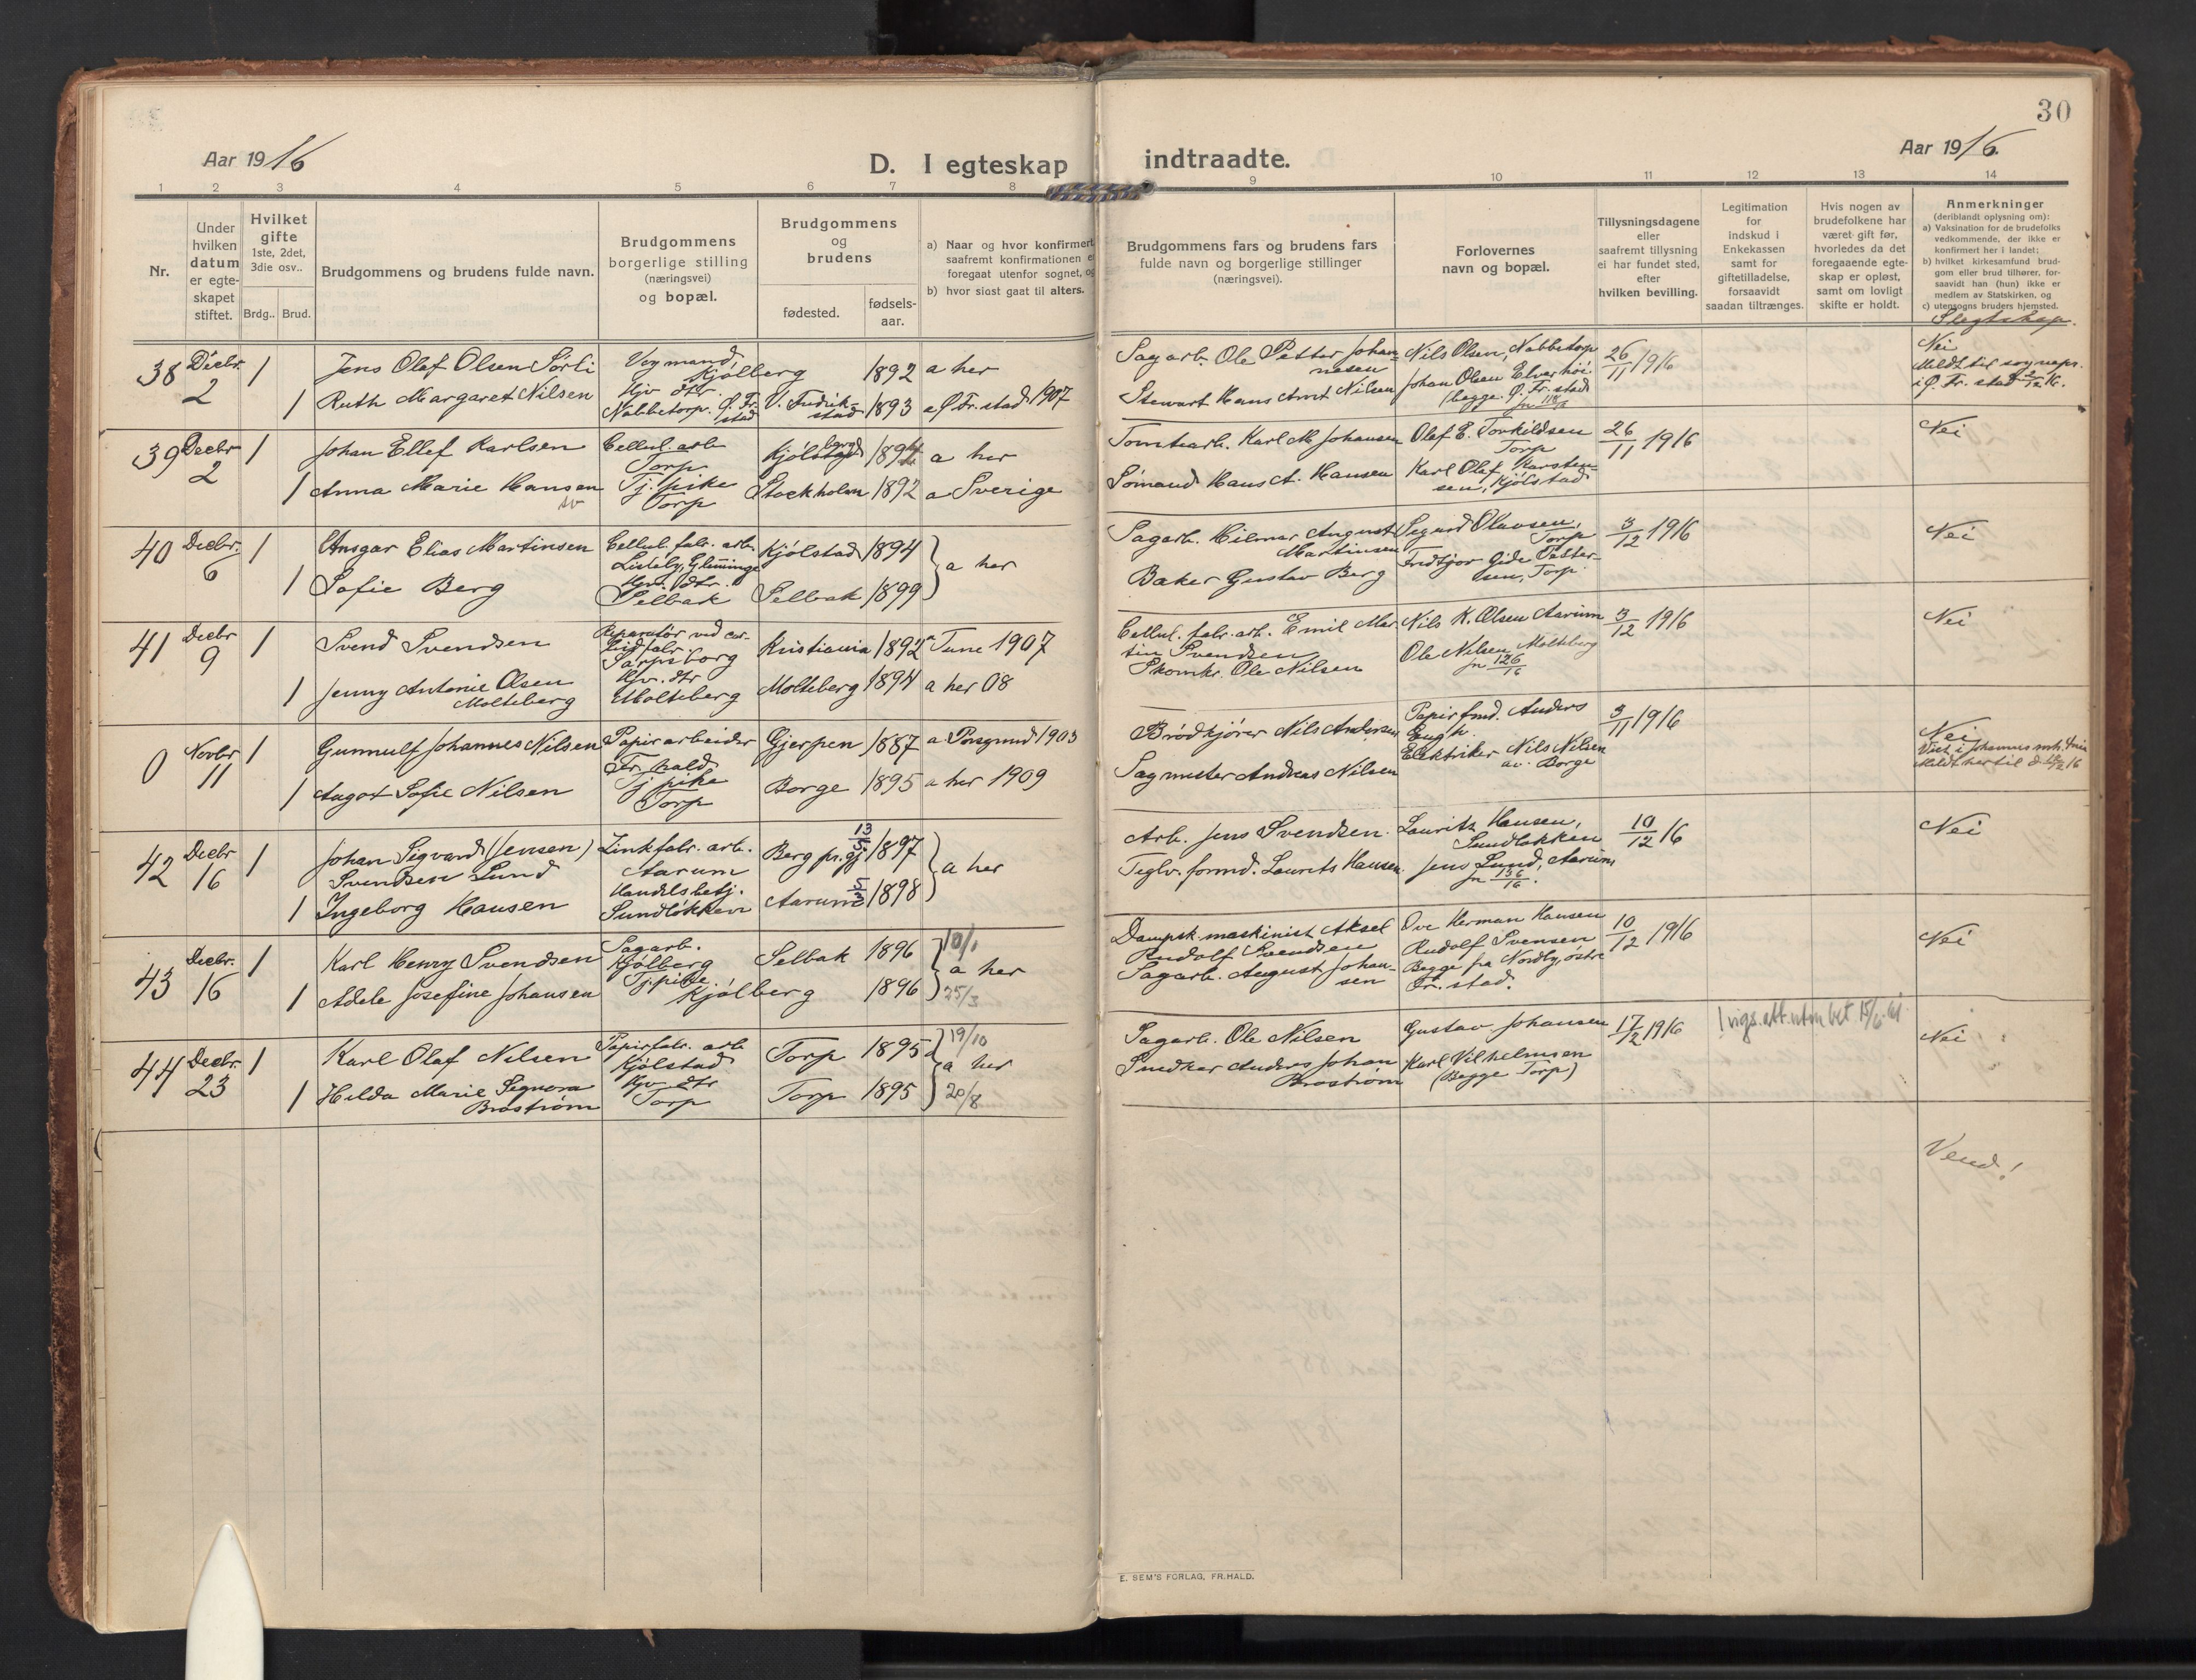 30
Aar 1916
D. I egteskap indtraadte.
Aar 1916.
1 2 3 4 5 6 7 8 9 10 11 12 13 14
Nr.
Under hvilken datum er egte-skapet stiftet.
Hvilket gifte 1ste, 2det, 3die osv..
Brdg.. Brud.
Brudgommens og brudens fulde navn.
Brudgommens borgerlige stilling (næringsvei) og bopæl.
Brudgommens og brudens
fødested. fødsels-aar.
a) Naar og hvor konfirmert
saafremt konfirmationen e
foregaat utenfor sognet, og
b) hvor sidst gaat til alters.
Brudgommens fars og brudens fars
fulde navn og borgerlige stillinger
(næringsvei).
Forlovernes
navn og bopæl.
Tillysningsdagene
eller
saafremt tillysning
ei har fundet sted,
efter
hvilken bevilling.
Legitimation
for
indskud i
Enkekassen
samt for
giftetilladelse,
forsaavidt
saadan tiltrænges.
Hvis nogen av
brudefolkene har
været gift før,
hvorledes da det
foregaaende egte-
skap er opløst,
samt om lovligt
skifte er holdt.
Anmerkninger
(deriblandt oplysning om):
a) Vaksination for de brudefolks
vedkommende, der ikke er
konfirmert her i landet;
b) hvilket kirkesamfund brud-
gom eller brud tilhører, for-
saavidt han (hun) ikke er
medlem av Statskirken, og
c) utensogns bruders hjemsted.
Slegtskap.
38 Decbr. 2 1 Jens Olaf Olsen Sørli Vogmand, Kjølberg 1892 a her
1 Ruth Margaret Nilsen Hjv. dtr. Nabbetorp. Ø. Fr.stad V. Fredrik-stad 1893 a Ø Fr. stad 1907
Sagarb. Ole Petter Johan-nesen
Stewart Hans Arnt Nilsen
Nils Olsen, Nabbetorp
Johan Olsen Elverhøi
(begge Ø. Fr. stad
26/11 1916
Nei
Meldt til sogneprs.
i Ø. Fr. stad 2/12 16.
39 Decbr 2 1 Johan Ellef Karlsen Cellul. arb Torp Kjølberg 1894 a her
1 Anna Marie Hansen Tj. pike Torp Stockholm 1892 a Sverige
Tomtearb. Karl M. Johansen
Sømand Hans A. Hansen
Olaf E. Torkildsen
Torp
Karl Olaf Karsten-
sen, Kjølstad
26/11 1916
Nei
40 Decbr. 6 1 Ansgar Elias Martinsen Cellul. fabr. arb. Lisleby, Glemminge Kjølstad 1894
1 Sofie Berg Hjv. dtr. Selbak Selbak 1899 a her
Sagarb. Hilmar August
Martinsen
Baker Gustav Berg
Sigurd Olavsen,
Torp
Fridtjor Gide Petter-
sen, Torp.
3/12 1916
Nei
41 Decbr 9 1 Svend Svendsen Reparatør ved car-bidfabr. Sarpsborg Kristiania 1892 a Tune 1907
1 Jenny Antonie Olsen Molteberg Hjv. dtr Molteberg Molteberg 1894 a her 08
Cellul. fabr. arb. Emil Mar-
tin Svendsen
Skomkr. Ole Nilsen
Nils K. Olsen Aarum
Ole Nilsen Molteberg
jn 126/16
3/12 1916
Nei
0 Novbr 11 1 Gunnulf Johannes Nilsen Papirarbeider Fr. hald Gjerpen 1887 a Porsgrund 1903
1 Aagot Sofie Nilsen Tj. pike Torp Borge 1895 a her 1909
Brødkjører Nils Andersen
Sagmester Andreas Nilsen
Papirfmd. Anders
Engh.
Elektriker Nils Nilsen
av Borge
3/11 1916
Nei
42 Decbr 16 1 Johan Sigvard (Jensen) Svendsen Lund Zinkfabr. arb. Aarum Berg pr. gj. 13/5 1897
1 Ingeborg Hansen Handelsbetj. Sundløkken Aarum 1898 a her
Arb. Jens Svendsen.
Teglv. formd. Laurits Hansen.
Laurits Hansen,
Sundløkken
Jens Lund, Aarum
jn 136/16.
10/12 16
Nei
43 Decbr. 16 1 Karl Henry Svendsen Sagarb. Kjølberg Selbak 1896 10/1
1 Adele Josefine Johansen Tj. pike Kjølberg 1896 a her 25/3
Dampsk. maskinist Aksel
Rudolf Svendsen
Sagarb. August Johan-
sen
Ove Herman Hansen
Rudolf Svensen
Begge fra Nordby, østre
Fr. stad.
10/12 1916
Nei
44 Decbr. 23 1 Karl Olaf Nilsen Papirfabr. arb Kjølstad Torp 1895 19/10
1 Hilda Marie Signora Brostrøm Hjv dtr Torp Torp 1895 a her 20/8
Sagarb. Ole Nilsen
Snedker Anders Johan
Brostrøm
Gustav Johansen
Karl Vilhelmsen
(Begge Torp)
17/12 1916
1 vigs. att. uten bet 15/6 61
Nei
Vend!
E. SEM'S FORLAG, FR.HALD.